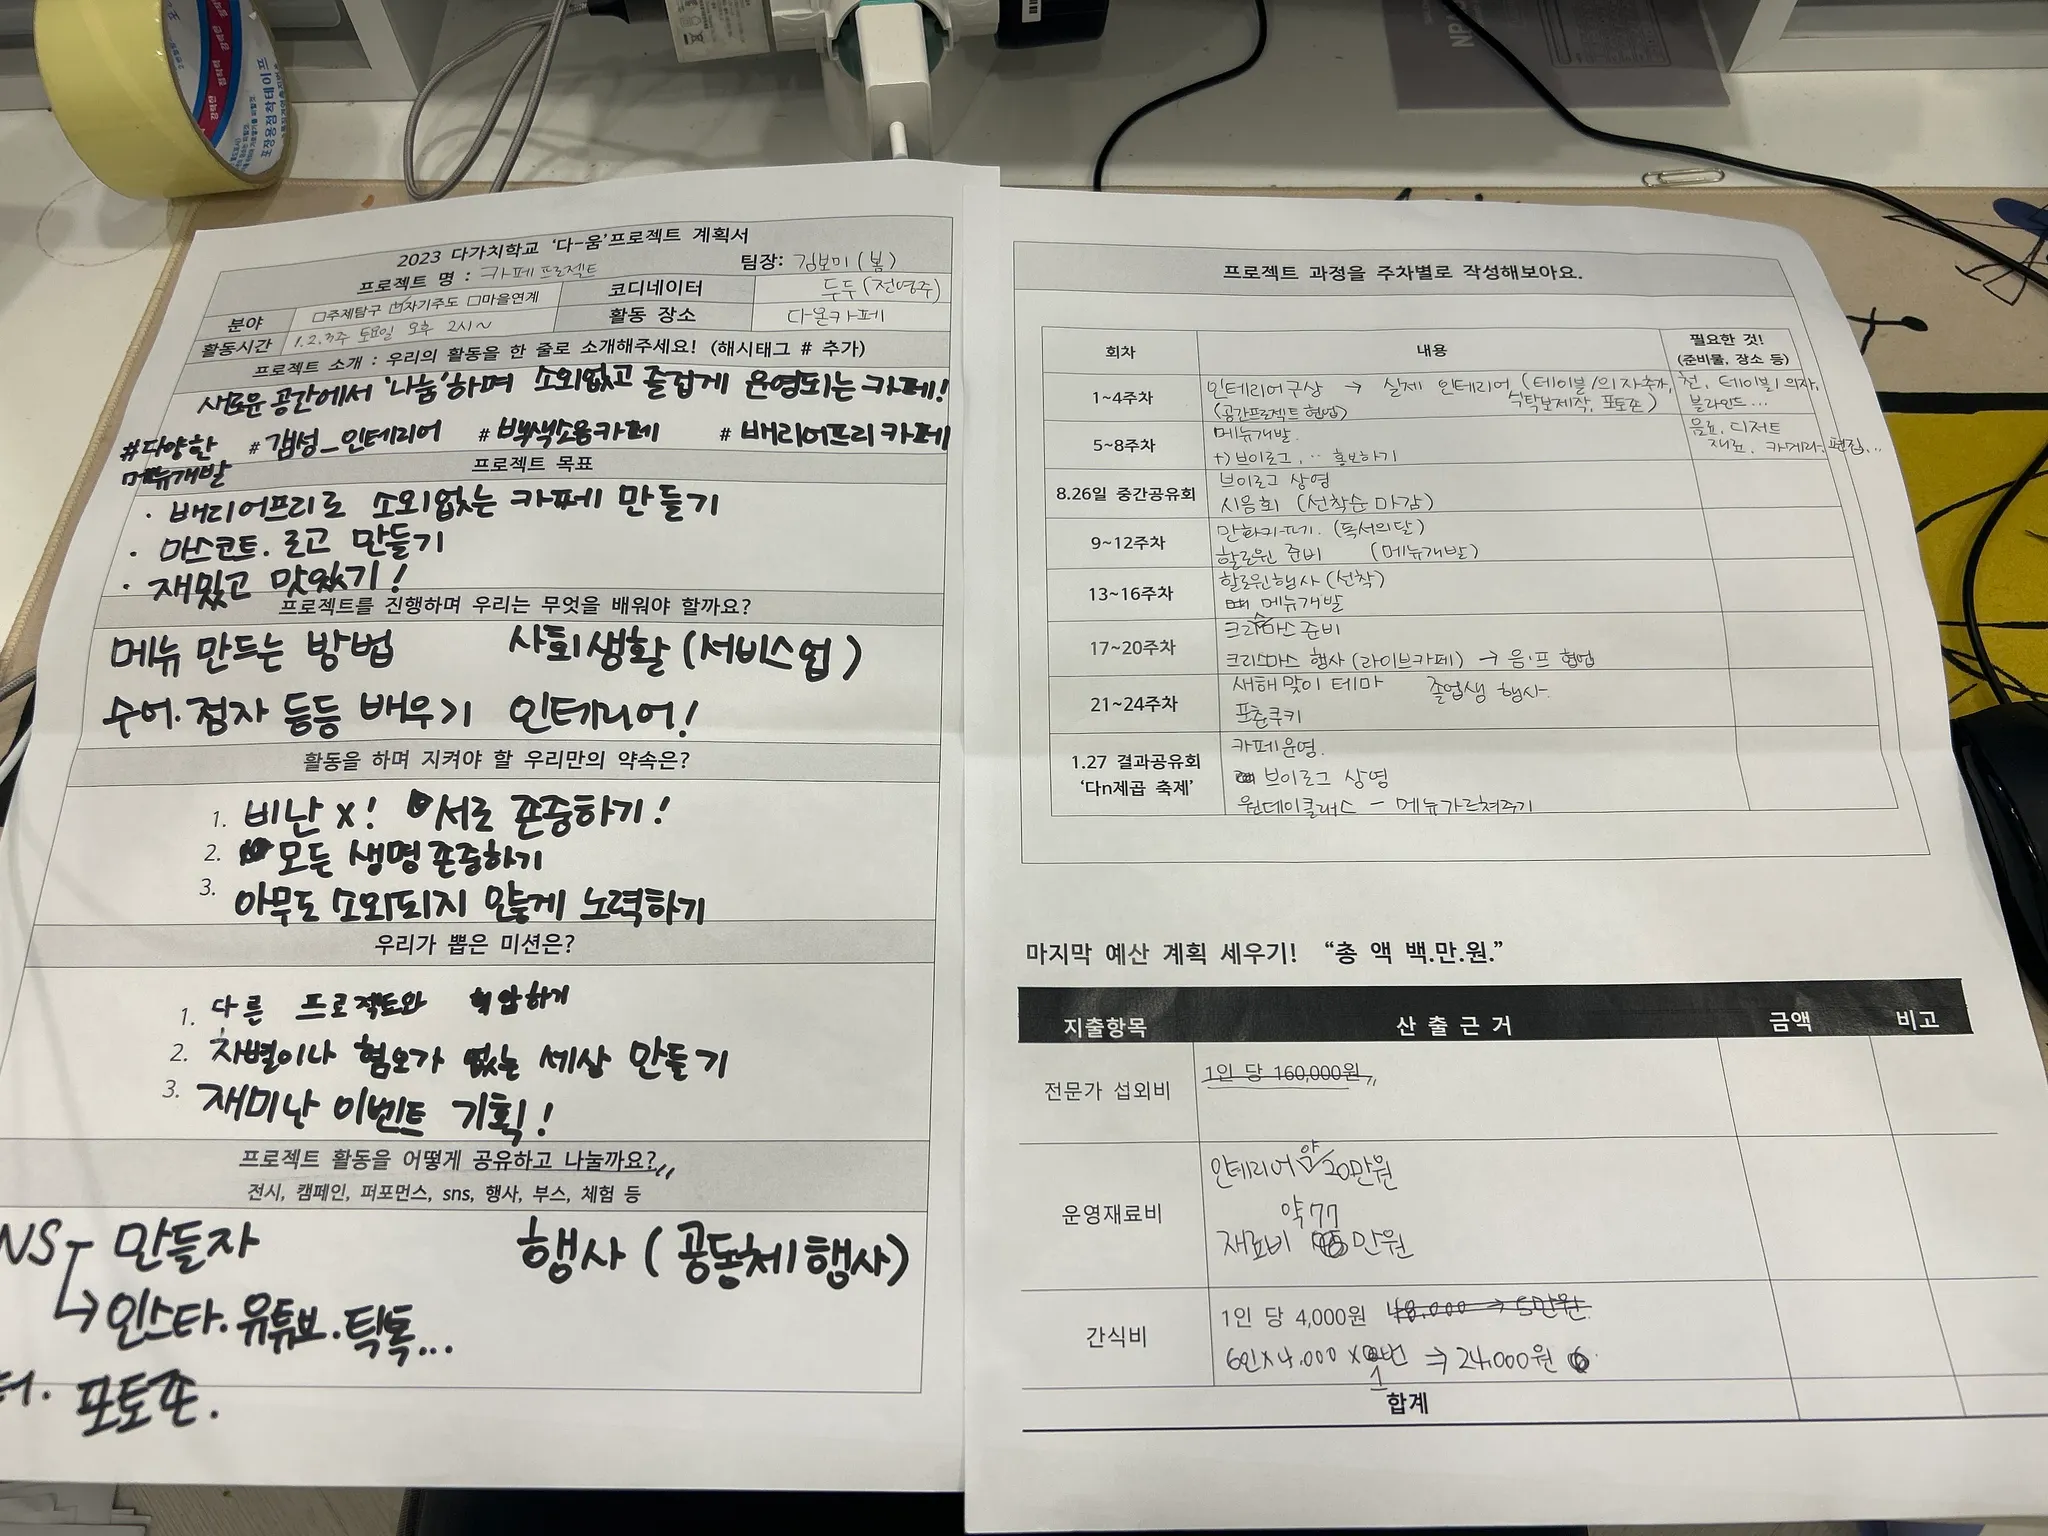 포장용접착테이프
2023 다가치학교 '다-움'프로젝트 계획서
프로젝트 명 : 카페 프로젝트 팀장: 김보미 (봄)
분야 □주제탐구 ☑자기주도 □마을연계 코디네이터 두두 (전영주)
활동시간 1.2.3주 토요일 오후 2시~ 활동 장소 다온카페
프로젝트 소개 : 우리의 활동을 한 줄로 소개해주세요! (해시태그 # 추가)
새로운 공간에서 '나눔'하며 소외없고 즐겁게 운영되는 카페!
#다양한 메뉴개발 #감성_인테리어 #백색소음카페 #배리어프리 카페
프로젝트 목표
· 배리어프리로 소외없는 카페 만들기
· 마스코트. 로고 만들기
· 재밌고 맛있기!
프로젝트를 진행하며 우리는 무엇을 배워야 할까요?
메뉴 만드는 방법 사회생활 (서비스업)
수어·점자 등등 배우기 인테리어!
활동을 하며 지켜야 할 우리만의 약속은?
1. 비난 x! 서로 존중하기!
2. 모든 생명 존중하기
3. 아무도 소외되지 않게 노력하기
우리가 뽑은 미션은?
1. 다른 프로젝트와 협업하기
2. 차별이나 혐오가 없는 세상 만들기
3. 재미난 이벤트 기획!
프로젝트 활동을 어떻게 공유하고 나눌까요?
전시, 캠페인, 퍼포먼스, sns, 행사, 부스, 체험 등
NS 만들자 행사 (공동체 행사)
→ 인스타·유튜브·틱톡...
터. 포토존.
프로젝트 과정을 주차별로 작성해보아요.
회차 내용 필요한 것!
(준비물, 장소 등)
1~4주차 인테리어 구상 → 실제 인테리어 (테이블/의자추가, 천, 테이블/의자,
(공간프로젝트 협업) 식탁보제작, 포토존) 블라인드...
5~8주차 메뉴개발. 음료, 디저트
+) 브이로그, ·· 홍보하기 재료, 카메라, 편집...
8.26일 중간공유회 브이로그 상영
시음회 (선착순 마감)
9~12주차 만화카페. (독서의달)
할로윈 준비 (메뉴개발)
13~16주차 할로윈행사 (선착)
메뉴개발
17~20주차 크리스마스 준비
크리스마스 행사 (라이브카페) → 음·프 협업
21~24주차 새해 맞이 테마 졸업생 행사.
포춘쿠키
1.27 결과공유회 카페운영.
'다n제곱 축제' 브이로그 상영
원데이클래스 - 메뉴가르쳐주기
마지막 예산 계획 세우기! "총 액 백.만.원."
지출항목 산 출 근 거 금액 비고
전문가 섭외비 1인 당 160,000원
운영재료비 인테리어 약 20만원
약 77
재료비 만원
간식비 1인 당 4,000원 48,000 → 5만원
6인x4,000 x 1번 ⇒ 24,000원
합계